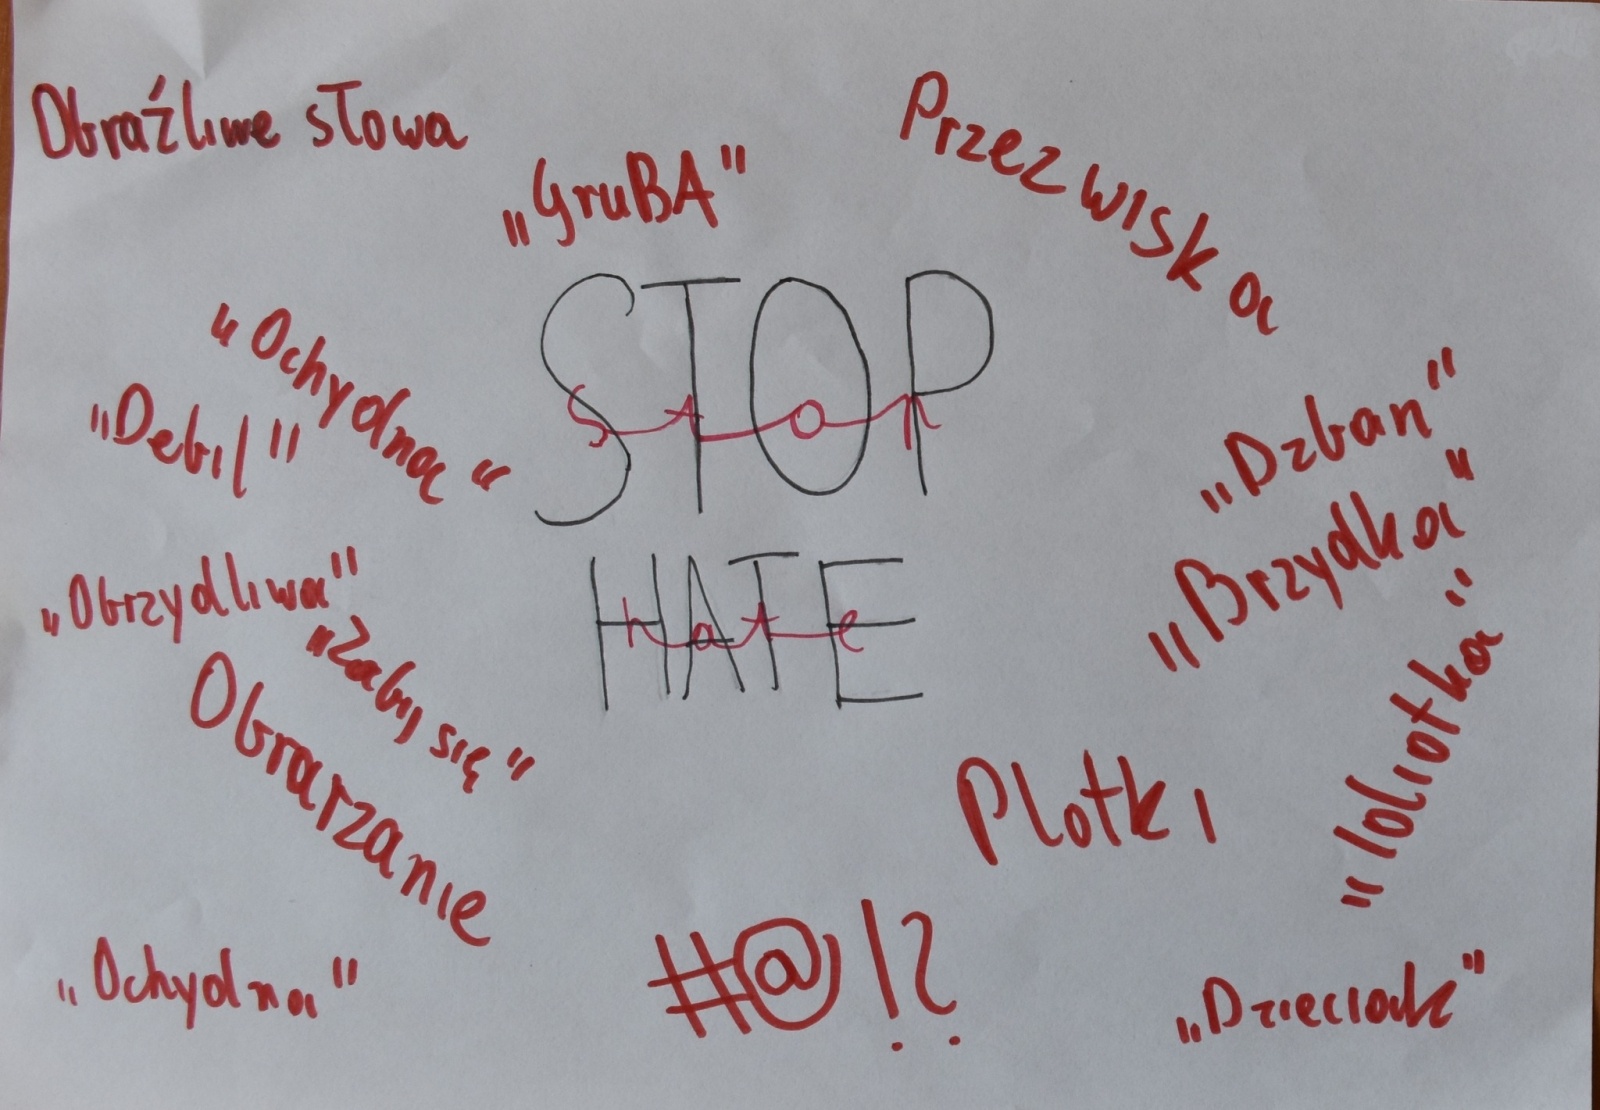 Obraźliwe słowa
Przezwiska
„GruBA"
STOP
stop
HATE
hate
"Ochydna"
"Debil"
„Obrzydliwa"
„Zabij się"
Obrarzanie
„Ochydna"
#@!?
„Dzban"
„Brzydka"
„Idiotka"
Plotki
„Dzieciak"